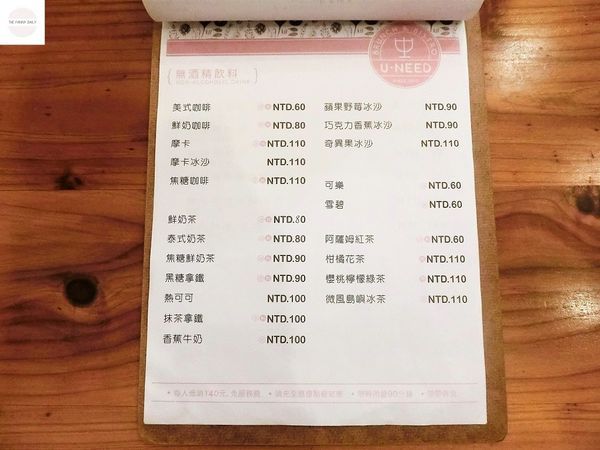 THE FUNNY DAILY
BRUNCH & BISTRO
U-NEED
無酒精飲料
NON-ALCOHOLIC DRINK
美式咖啡 NTD.60
鮮奶咖啡 NTD.80
摩卡 NTD.110
摩卡冰沙 NTD.110
焦糖咖啡 NTD.110
鮮奶茶 NTD.80
泰式奶茶 NTD.80
焦糖鮮奶茶 NTD.90
黑糖拿鐵 NTD.90
熱可可 NTD.100
抹茶拿鐵 NTD.100
香蕉牛奶 NTD.100
蘋果野莓冰沙 NTD.90
巧克力香蕉冰沙 NTD.90
奇異果冰沙 NTD.110
可樂 NTD.60
雪碧 NTD.60
阿薩姆紅茶 NTD.60
柑橘花茶 NTD.110
櫻桃檸檬綠茶 NTD.110
微風島嶼冰茶 NTD.110
• 每人低消140元, 免服務費